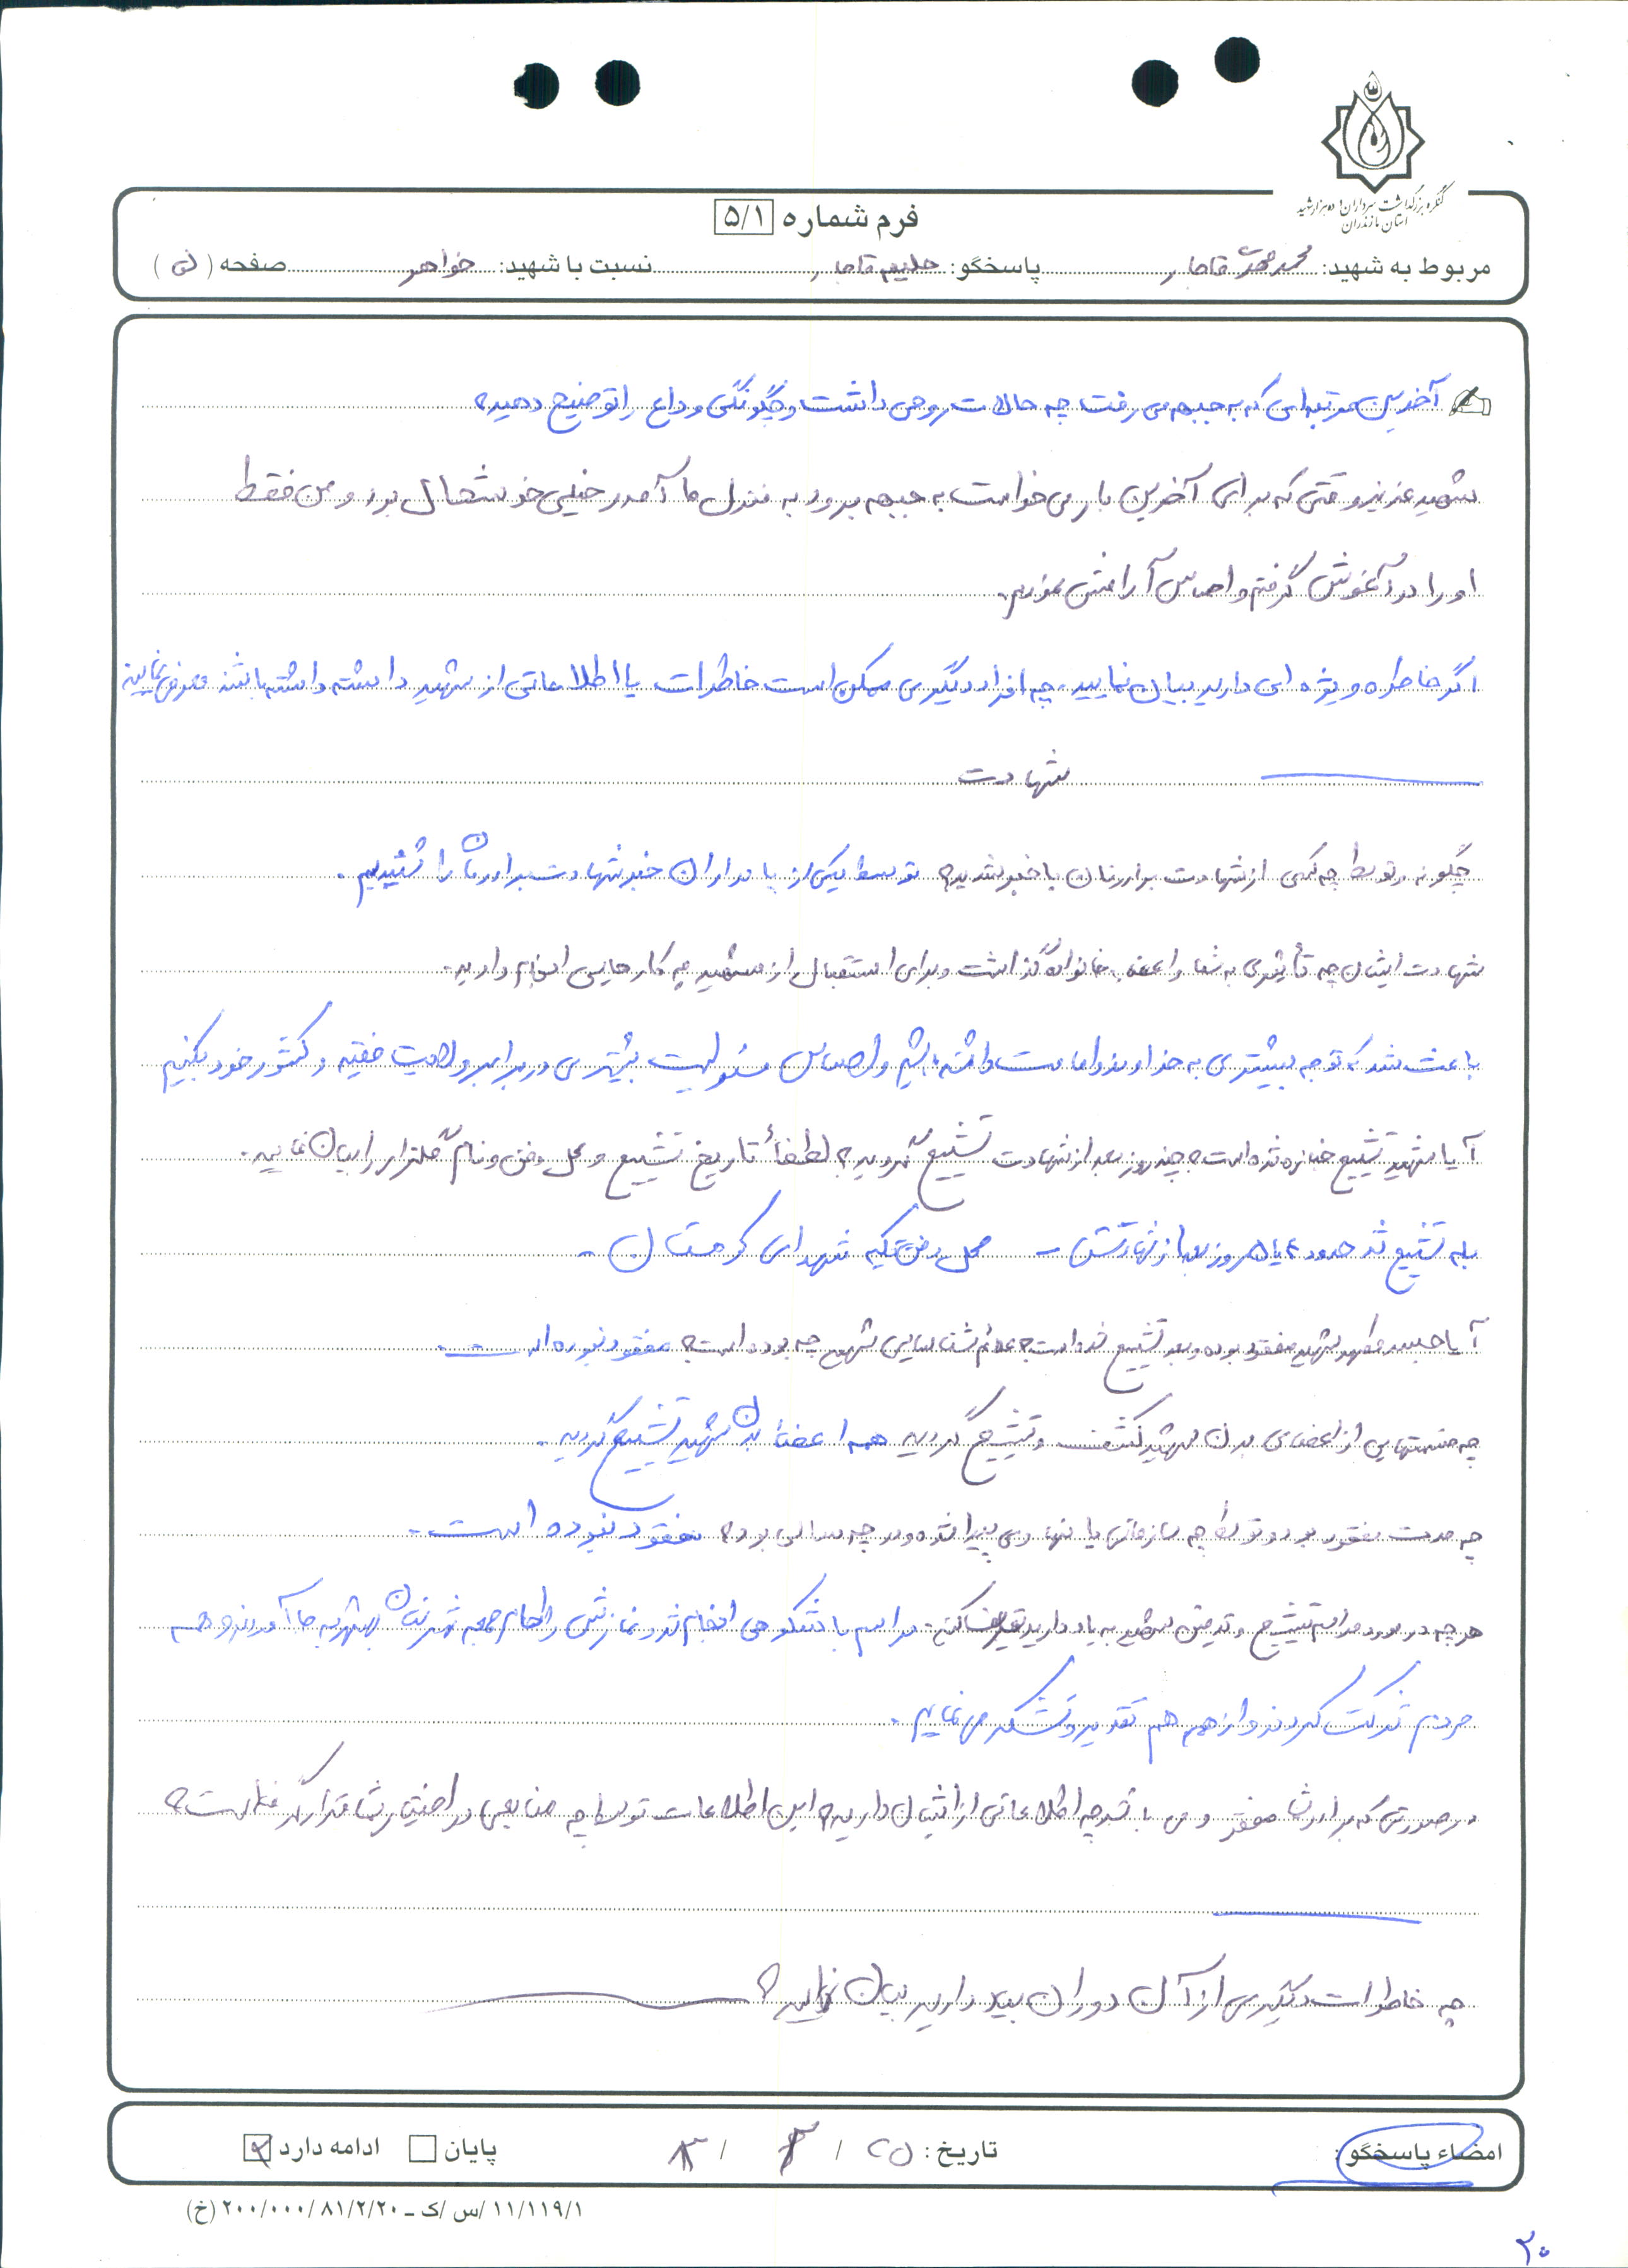 کنگره بزرگداشت سرداران و ده هزار شهید
استان مازندران
فرم شماره ۵/۱
مربوط به شهید: محمد قاجار پاسخگو: حلیمه قاجار نسبت با شهید: خواهر صفحه ( )
آخرین مرتبه‌ای که به جبهه می رفت چه حالات روحی داشت و چگونگی وداع را توضیح دهید؟
شهید عزیز وقتی که برای آخرین بار می خواست به جبهه برود به منزل ما آمد و خیلی خوشحال بود و من فقط
او را در آغوش گرفتم و احساس آرامش نمودم.
اگر خاطره ویژه ای دارید بیان نمایید. چه افراد دیگری ممکن است خاطرات یا اطلاعاتی از شهید داشته باشند معرفی نمایید
شهادت
چگونه و توسط چه کسی از شهادت برادرتان باخبر شدید؟ توسط یکی از پاسداران خبر شهادت برادرمان را شنیدیم.
شهادت ایشان چه تأثیری به شما و اعضاء خانواده گذاشت و برای استقبال از شهید چه کارهایی انجام دادید.
باعث شد که توجه بیشتری به خداوند و امامت داشته باشیم و احساس مسئولیت بیشتری در برابر ولایت فقیه و کشور خود بکنیم
آیا شهید تشییع جنازه شده است؟ چند روز بعد از شهادت تشییع گردید؟ لطفاً تاریخ تشییع و محل دفن و نام گلزار را بیان نمایید.
بله تشییع شد حدود ۴ یا ۵ روز بعد از شهادتش - محل دفن تکیه شهدای کردستان -
آیا جسد مطهر شهید مفقود بوده و بعد تشییع شده است؟ علائم شناسایی شهید چه بوده است؟ مفقود نبوده است.
چه قسمتهایی از اعضای بدن شهید کشف و تشییع گردید همه اعضاء بدن شهید تشییع گردید.
چه مدت مفقود بود و توسط چه سازمانی یا نهادی پیدا شده و در چه سالی بود؟ مفقود نبوده است.
هر چه در مورد مراسم تشییع و تدفین شهید به یاد دارید تعریف کنید. مراسم باشکوهی انجام شد و نمازش را امام جمعه شهرمان بهشهر به جا آوردند و همه
مردم شرکت کردند و از همه هم تقدیر و تشکر می نمایم.
در صورتی که برادرتان مفقود می باشد چه اطلاعاتی از ایشان دارید؟ این اطلاعات توسط چه منابعی در اختیار شما قرار گرفته است؟
چه خاطرات دیگری از آن دوران بیاد دارید بیان نمایید؟
امضاء پاسخگو: تاریخ: ۲۵ / / پایان ادامه دارد
۱۱/۱۱۹/۱ /س /ک ـ ۲۰۰/۰۰۰/۸۱/۲/۲۰ (خ)
۲۰